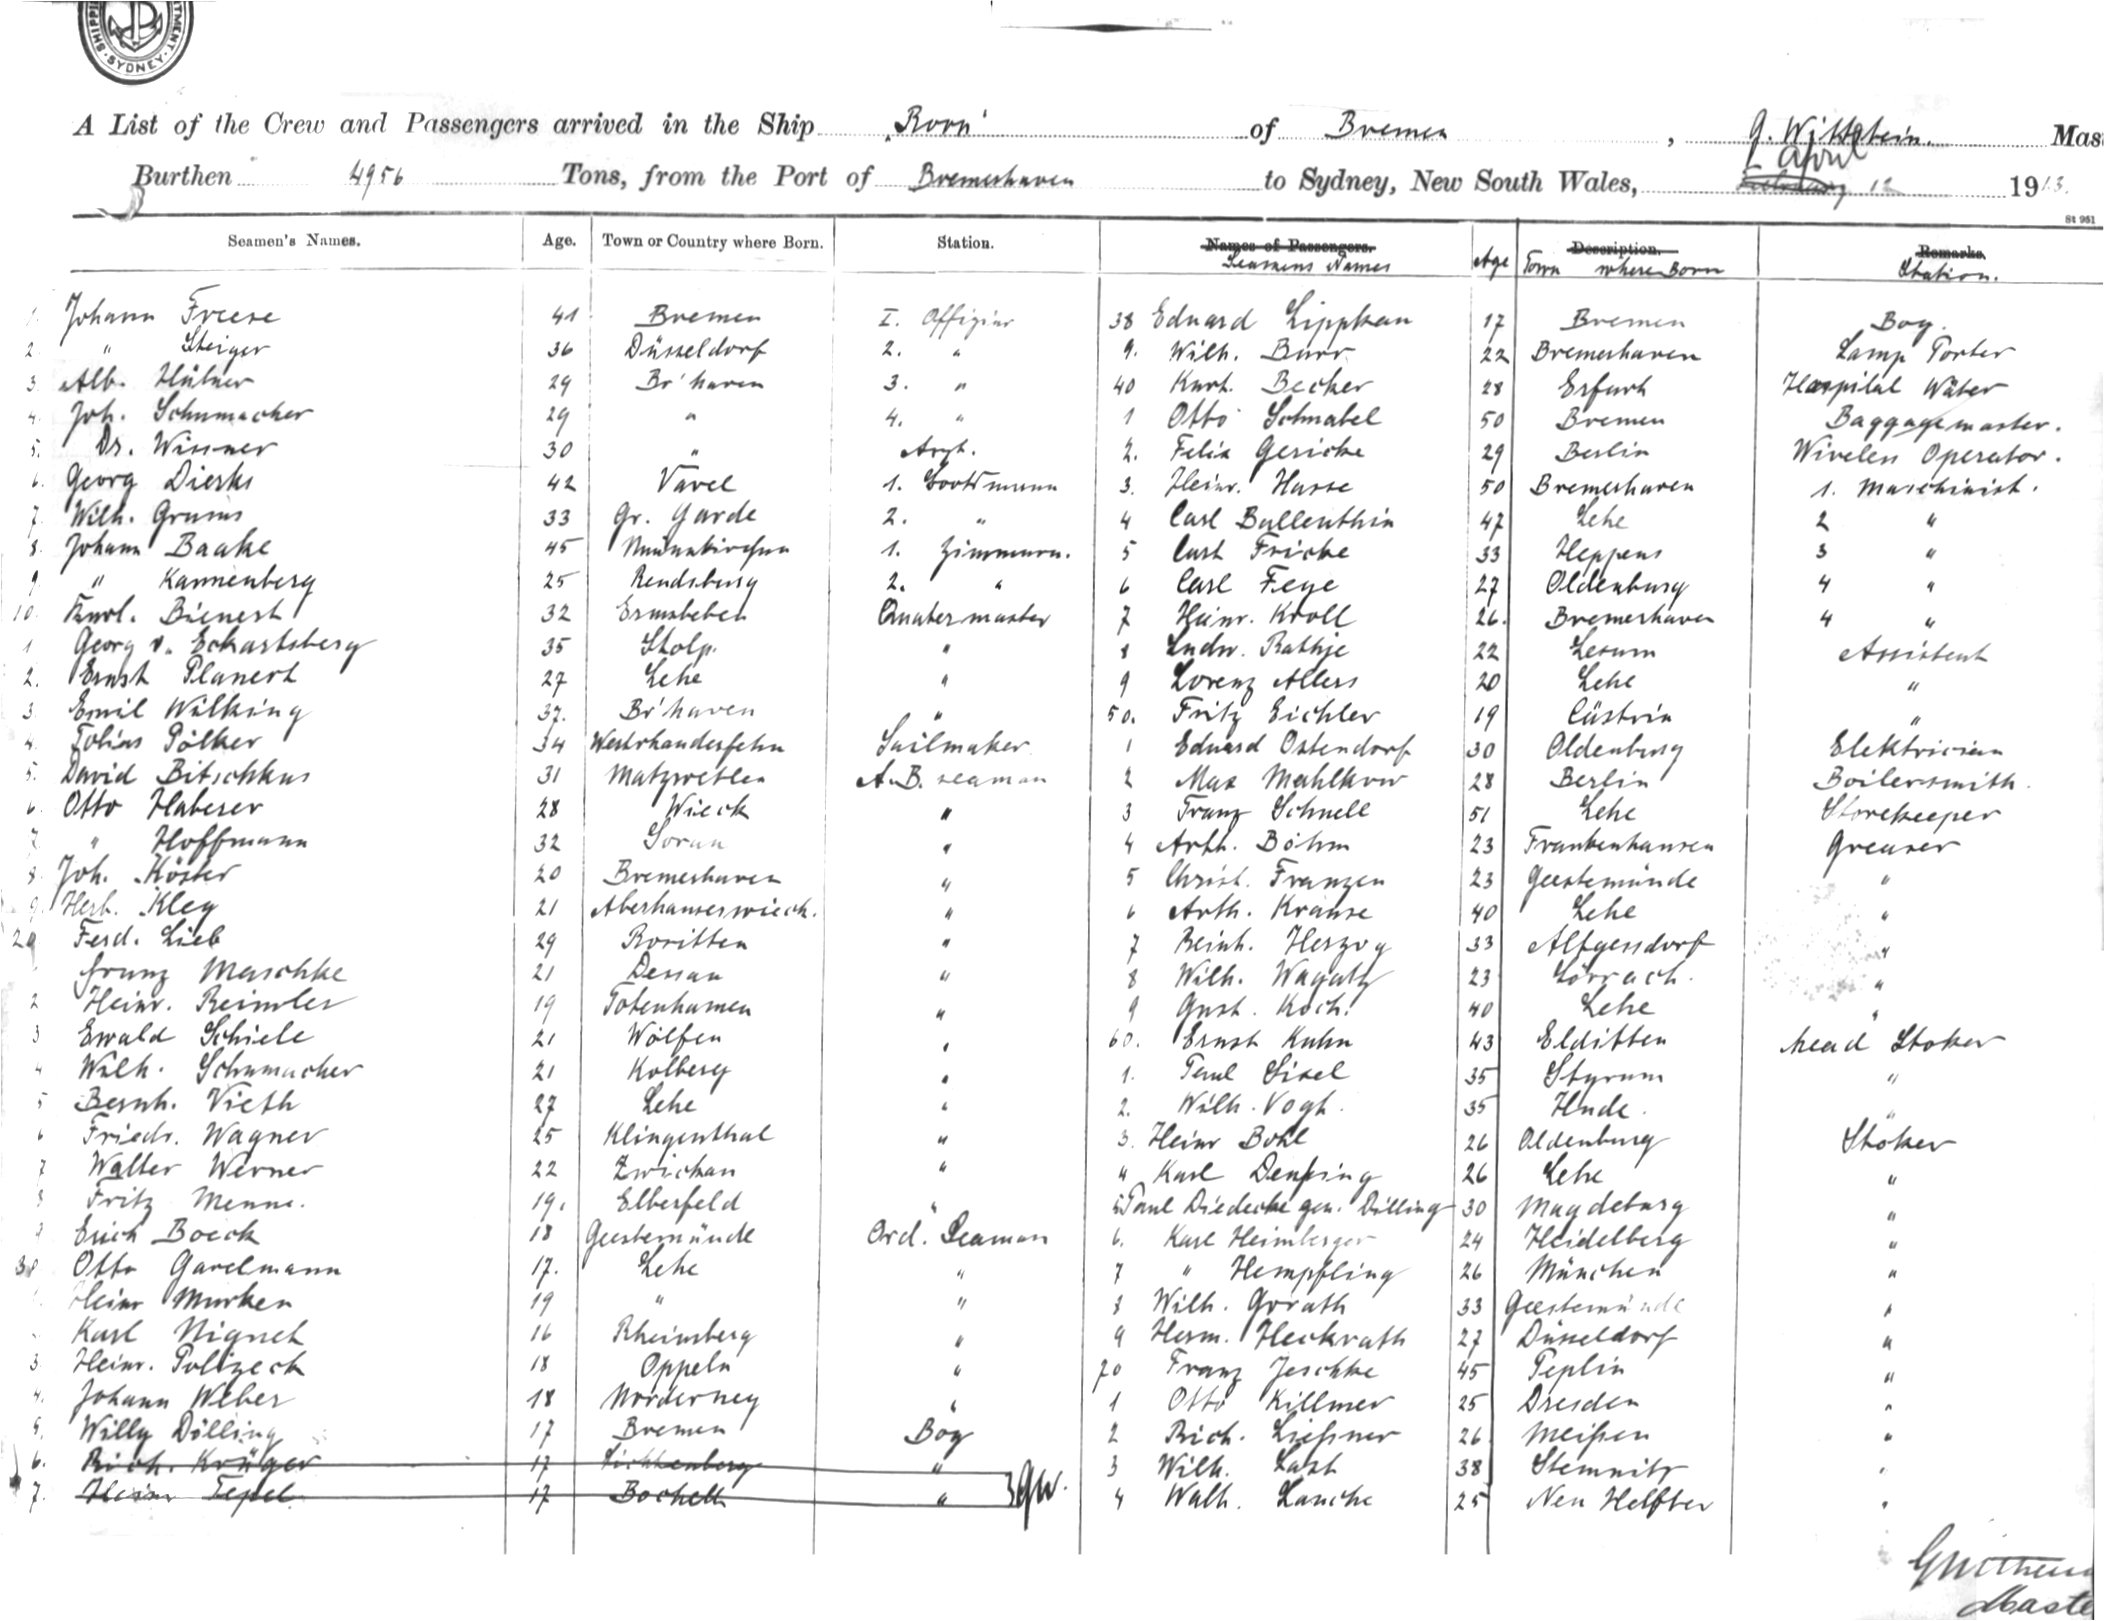 SHIPPI TMENT. SYDNEY
A List of the Crew and Passengers arrived in the Ship "Roon" of Bremen, G. Wittstein. Mas
April
Burthen 4956 Tons, from the Port of Bremerhaven to Sydney, New South Wales, February 12 1913.
St 961
Seamen's Names. Age. Town or Country where Born. Station. Names of Passengers. Age Description. Remarks.
Seamens Names Town where Born Station.
1. Johann Freese 41 Bremen I. Offizier 38 Eduard Lippkau 17 Bremen Boy.
2. " Steiger 36 Düsseldorf 2. " 9. Wilh. Burr 22 Bremerhaven Lamp Porter
3. Alb. Hübner 29 Br'haven 3. " 40 Kurt. Becker 28 Erfurt Hospital Wäter
4. Joh. Schumacher 29 " 4. " 1 Otto Schnabel 50 Bremen Baggagemaster.
5. Dr. Wissner 30 " Arzt. 2. Felix Gericke 29 Berlin Wireless Operator.
6. Georg Dierks 42 Varel 1. Bootsmann 3. Heinr. Hasse 50 Bremerhaven 1. Maschinist.
7. Wilh. Grums 33 Gr. Garde 2. " 4 Carl Ballenthin 47 Lehe 2 "
8. Johann Baake 45 1. Zimmerm. 5 Curt Fricke 33 Heppens 3 "
9. " Kannenberg 25 Rendsburg 2. " 6 Carl Feye 27 Oldenburg 4 "
10. Karl. Bienert 32 Ermsleben Quatermaster 7 Heinr. Kroll 26. Bremerhaven 4 "
1 Georg v. Eckartsberg 35 Stolp. " 8 Ludw. Rathje 22 Lesum Assistent
2. Ernst Planert 27 Lehe " 9 Lorenz Allers 20 Lehe "
3 Emil Wilking 37. Br'haven " 50. Fritz Eichler 19 Cüstrin "
4. Tobias Pölker 34 Westrhauderfehn Sailmaker 1 Eduard Ostendorf 30 Oldenburg Elektrician
5. David Bitschkus 31 Matzwethen A.B. seaman 2 Max Mahlkow 28 Berlin Boilersmith.
6. Otto Haberer 28 Wieck " 3 Franz Schnell 51 Lehe Storekeeper
7. " Hoffmann 32 Sorau " 4 Arth. Böhm 23 Frankenhausen Greaser
8. Joh. Köster 20 Bremerhaven " 5 Christ. Franzen 23 Geestemünde "
9. Herb. Kley 21 " 6 Arth. Krause 40 Lehe "
20 Ferd. Lieb 29 Rositten " 7 Reinh. Herzog 33 Altgersdorf "
Franz Maschke 21 Dessau " 8 Wilh. Wagatz 23 Lörrach. "
2 Heinr. Reimler 19 Totenhausen " 9 Gust. Koch. 40 Lehe "
3 Ewald Schiele 21 Wolfen " 60. Ernst Kuhn 43 Elditten Head Stoker
4 Wilh. Schumacher 21 Kolberg " 1. Paul Sisel 35 Styrum "
5 Bernh. Vieth 27 Lehe " 2. Wilh. Vogt. 35 Hude. "
6 Friedr. Wagner 25 Klingenthal " 3. Heinr Bohl 26 Oldenburg Stoker
7 Walter Werner 22 Zwickau " 4 Karl Denßing 26 Lehe "
8 Fritz Menne. 19. Elberfeld " 5 Paul Diedecke gen. Dölling 30 Magdeburg "
9 Erich Boeck 18 Geestemünde Ord. Seaman 6. Karl Heimberger 24 Heidelberg "
30 Otto Garelmann 17. Lehe " 7 " Hempfling 26 München "
Heinr Murken 19 " " 8 Wilh. Gorath 33 Geestemünde "
Karl Nignet 16 Rheinsberg " 9 Herm. Heckrath 27 Düsseldorf "
3. Heinr. Polizeck 18 Oppeln " 70 Franz Jeschke 45 Peplin "
4. Johann Weber 18 Norderney " 1 Otto Killmer 25 Dresden "
5. Willy Dölling 17 Bremen Boy 2 Rich. Ließner 26 Meißen "
6. Rich. Krüger 17 Lichtenberg " 3 Wilh. Last 38 Stemnitz "
7. Heinr Tepel 17 Bocholt " GW. 4 Walt. Lanche 25 Neu Helfter "
Maste